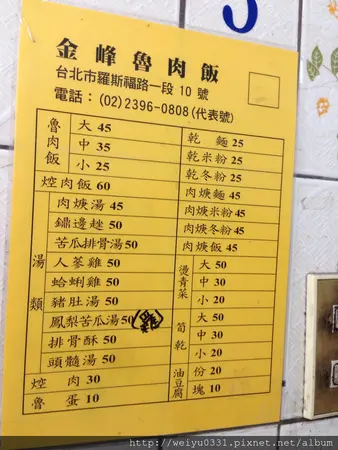 金峰魯肉飯
台北市羅斯福路一段 10 號
電話：(02)2396-0808(代表號)
魯肉飯
大 45
中 35
小 25
焢肉飯 60
湯類
肉焿湯 45
鏽邊趖 50
苦瓜排骨湯 50
人蔘雞 50
蛤蜊雞 50
豬肚湯 50
鳳梨苦瓜湯 50
排骨酥 50
頭髓湯 50
焢肉 30
魯蛋 10
乾麵 25
乾米粉 25
乾冬粉 25
肉焿麵 45
肉焿米粉 45
肉焿冬粉 45
肉焿飯 45
燙青菜
大 50
中 30
小 20
筍乾
大 50
中 30
小 20
油豆腐
份 20
塊 10
http://weiyu0331.pixnet.net/album